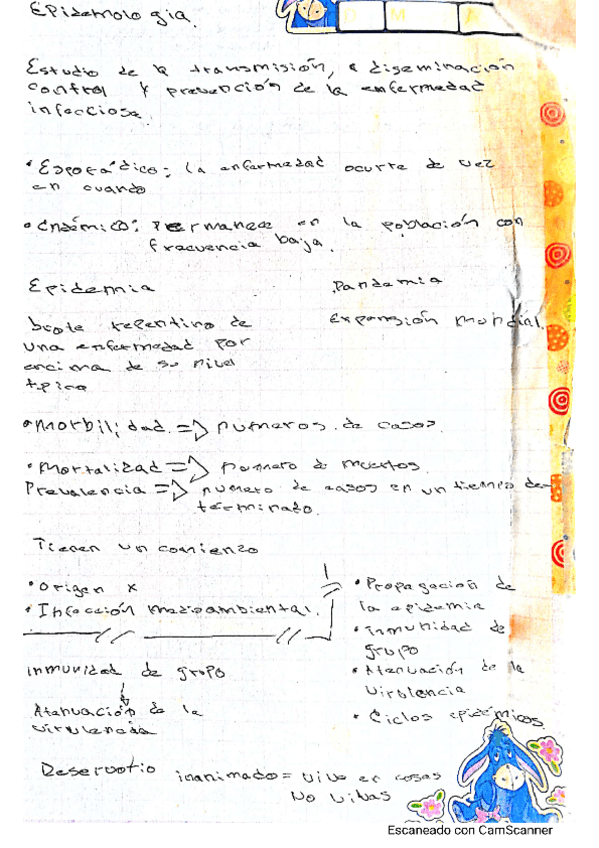 Epidemologia.
D M A
Estudio de la transmisión, diseminación
control y prevención de la enfermedad
infecciosa.
• Esporádico: la enfermedad ocurre de vez
en cuando
• Endémico: permanece en la población con
frecuencia baja.
Epidemia
brote repentino de
una enfermedad por
encima de su nivel
tipico
Pandemia
Expansión mundial.
• Morbilidad => numeros de casos
• Mortalidad => numero de muertos.
Prevalencia => numero de casos en un tiempo de-
terminado.
Tienen un comienzo
• Origen x
• Infección medioambiental.
• Propagacion de
la epidemia
• inmunidad de
grupo
• Atenuación de la
virulencia
• Ciclos epidémicos
inmunidad de grupo
Atenuación de la
virulencia
Reservorio inanimado = vive en cosas
No vivas
Escaneado con CamScanner